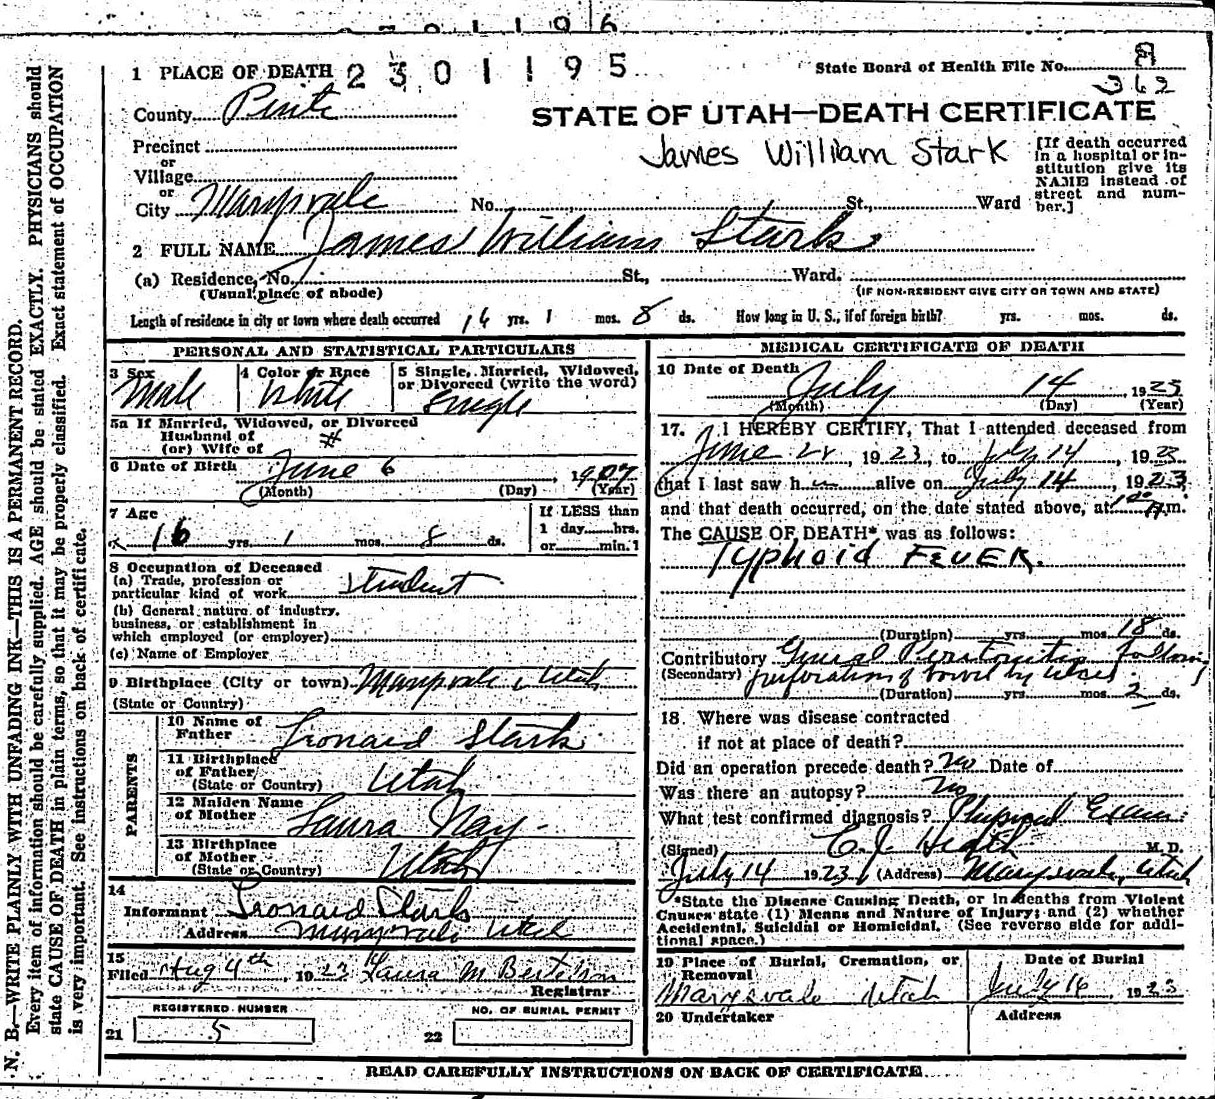 2301196
1 PLACE OF DEATH 2301195
State Board of Health File No. 8
362
County Piute
STATE OF UTAH—DEATH CERTIFICATE
James William Stark
[If death occurred in a hospital or institution give its NAME instead of street and number.]
Precinct
or
Village
or
City Marysvale No. St., Ward
2 FULL NAME James William Stark
(a) Residence, No. St., Ward.
(Usual place of abode) (IF NON-RESIDENT GIVE CITY OR TOWN AND STATE)
Length of residence in city or town where death occurred 16 yrs. 1 mos. 8 ds. How long in U. S., if of foreign birth? yrs. mos. ds.
PERSONAL AND STATISTICAL PARTICULARS
3 Sex
Male
4 Color or Race
White
5 Single, Married, Widowed, or Divorced (write the word)
Single
5a If Married, Widowed, or Divorced
Husband of
(or) Wife of
6 Date of Birth June 6, 1907
(Month) (Day) (Year)
7 Age
16 yrs. 1 mos. 8 ds.
If LESS than
1 day hrs.
or min.?
8 Occupation of Deceased
(a) Trade, profession or
particular kind of work Student
(b) General nature of industry,
business, or establishment in
which employed (or employer)
(c) Name of Employer
9 Birthplace (City or town) Marysvale, Utah
(State or Country)
PARENTS
10 Name of
Father Leonard Stark
11 Birthplace
of Father
(State or Country) Utah
12 Maiden Name
of Mother Laura Nay
13 Birthplace
of Mother
(State or Country) Utah
14
Informant Leonard Stark
Address Marysvale Utah
15
Filed Aug 4th, 1923 Laura M Bertelson
Registrar
REGISTERED NUMBER
21 5
NO. OF BURIAL PERMIT
22
MEDICAL CERTIFICATE OF DEATH
10 Date of Death
July 14, 1923
(Month) (Day) (Year)
17. I HEREBY CERTIFY, That I attended deceased from
June, 1923, to July 14, 1923
that I last saw h alive on July 14, 1923
and that death occurred, on the date stated above, at m.
The CAUSE OF DEATH* was as follows:
Typhoid FEVER.
(Duration) yrs. mos. 18 ds.
Contributory General Peritonitis following
(Secondary) perforation of bowel by ulcer
(Duration) yrs. mos. 2 ds.
18. Where was disease contracted
if not at place of death?
Did an operation precede death? No Date of
Was there an autopsy? No
What test confirmed diagnosis? Physical Exam.
(Signed) C. J. Heath M. D.
July 14 1923 (Address) Marysvale, Utah
*State the Disease Causing Death, or in deaths from Violent
Causes state (1) Means and Nature of Injury; and (2) whether
Accidental, Suicidal or Homicidal. (See reverse side for addi-
tional space.)
19 Place of Burial, Cremation, or
Removal
Marysvale Utah
Date of Burial
July 16, 1923
20 Undertaker
Address
READ CAREFULLY INSTRUCTIONS ON BACK OF CERTIFICATE
N. B.—WRITE PLAINLY WITH UNFADING INK—THIS IS A PERMANENT RECORD.
Every item of information should be carefully supplied. AGE should be stated EXACTLY. PHYSICIANS should
state CAUSE OF DEATH in plain terms, so that it may be properly classified. Exact statement of OCCUPATION
is very important. See instructions on back of certificate.